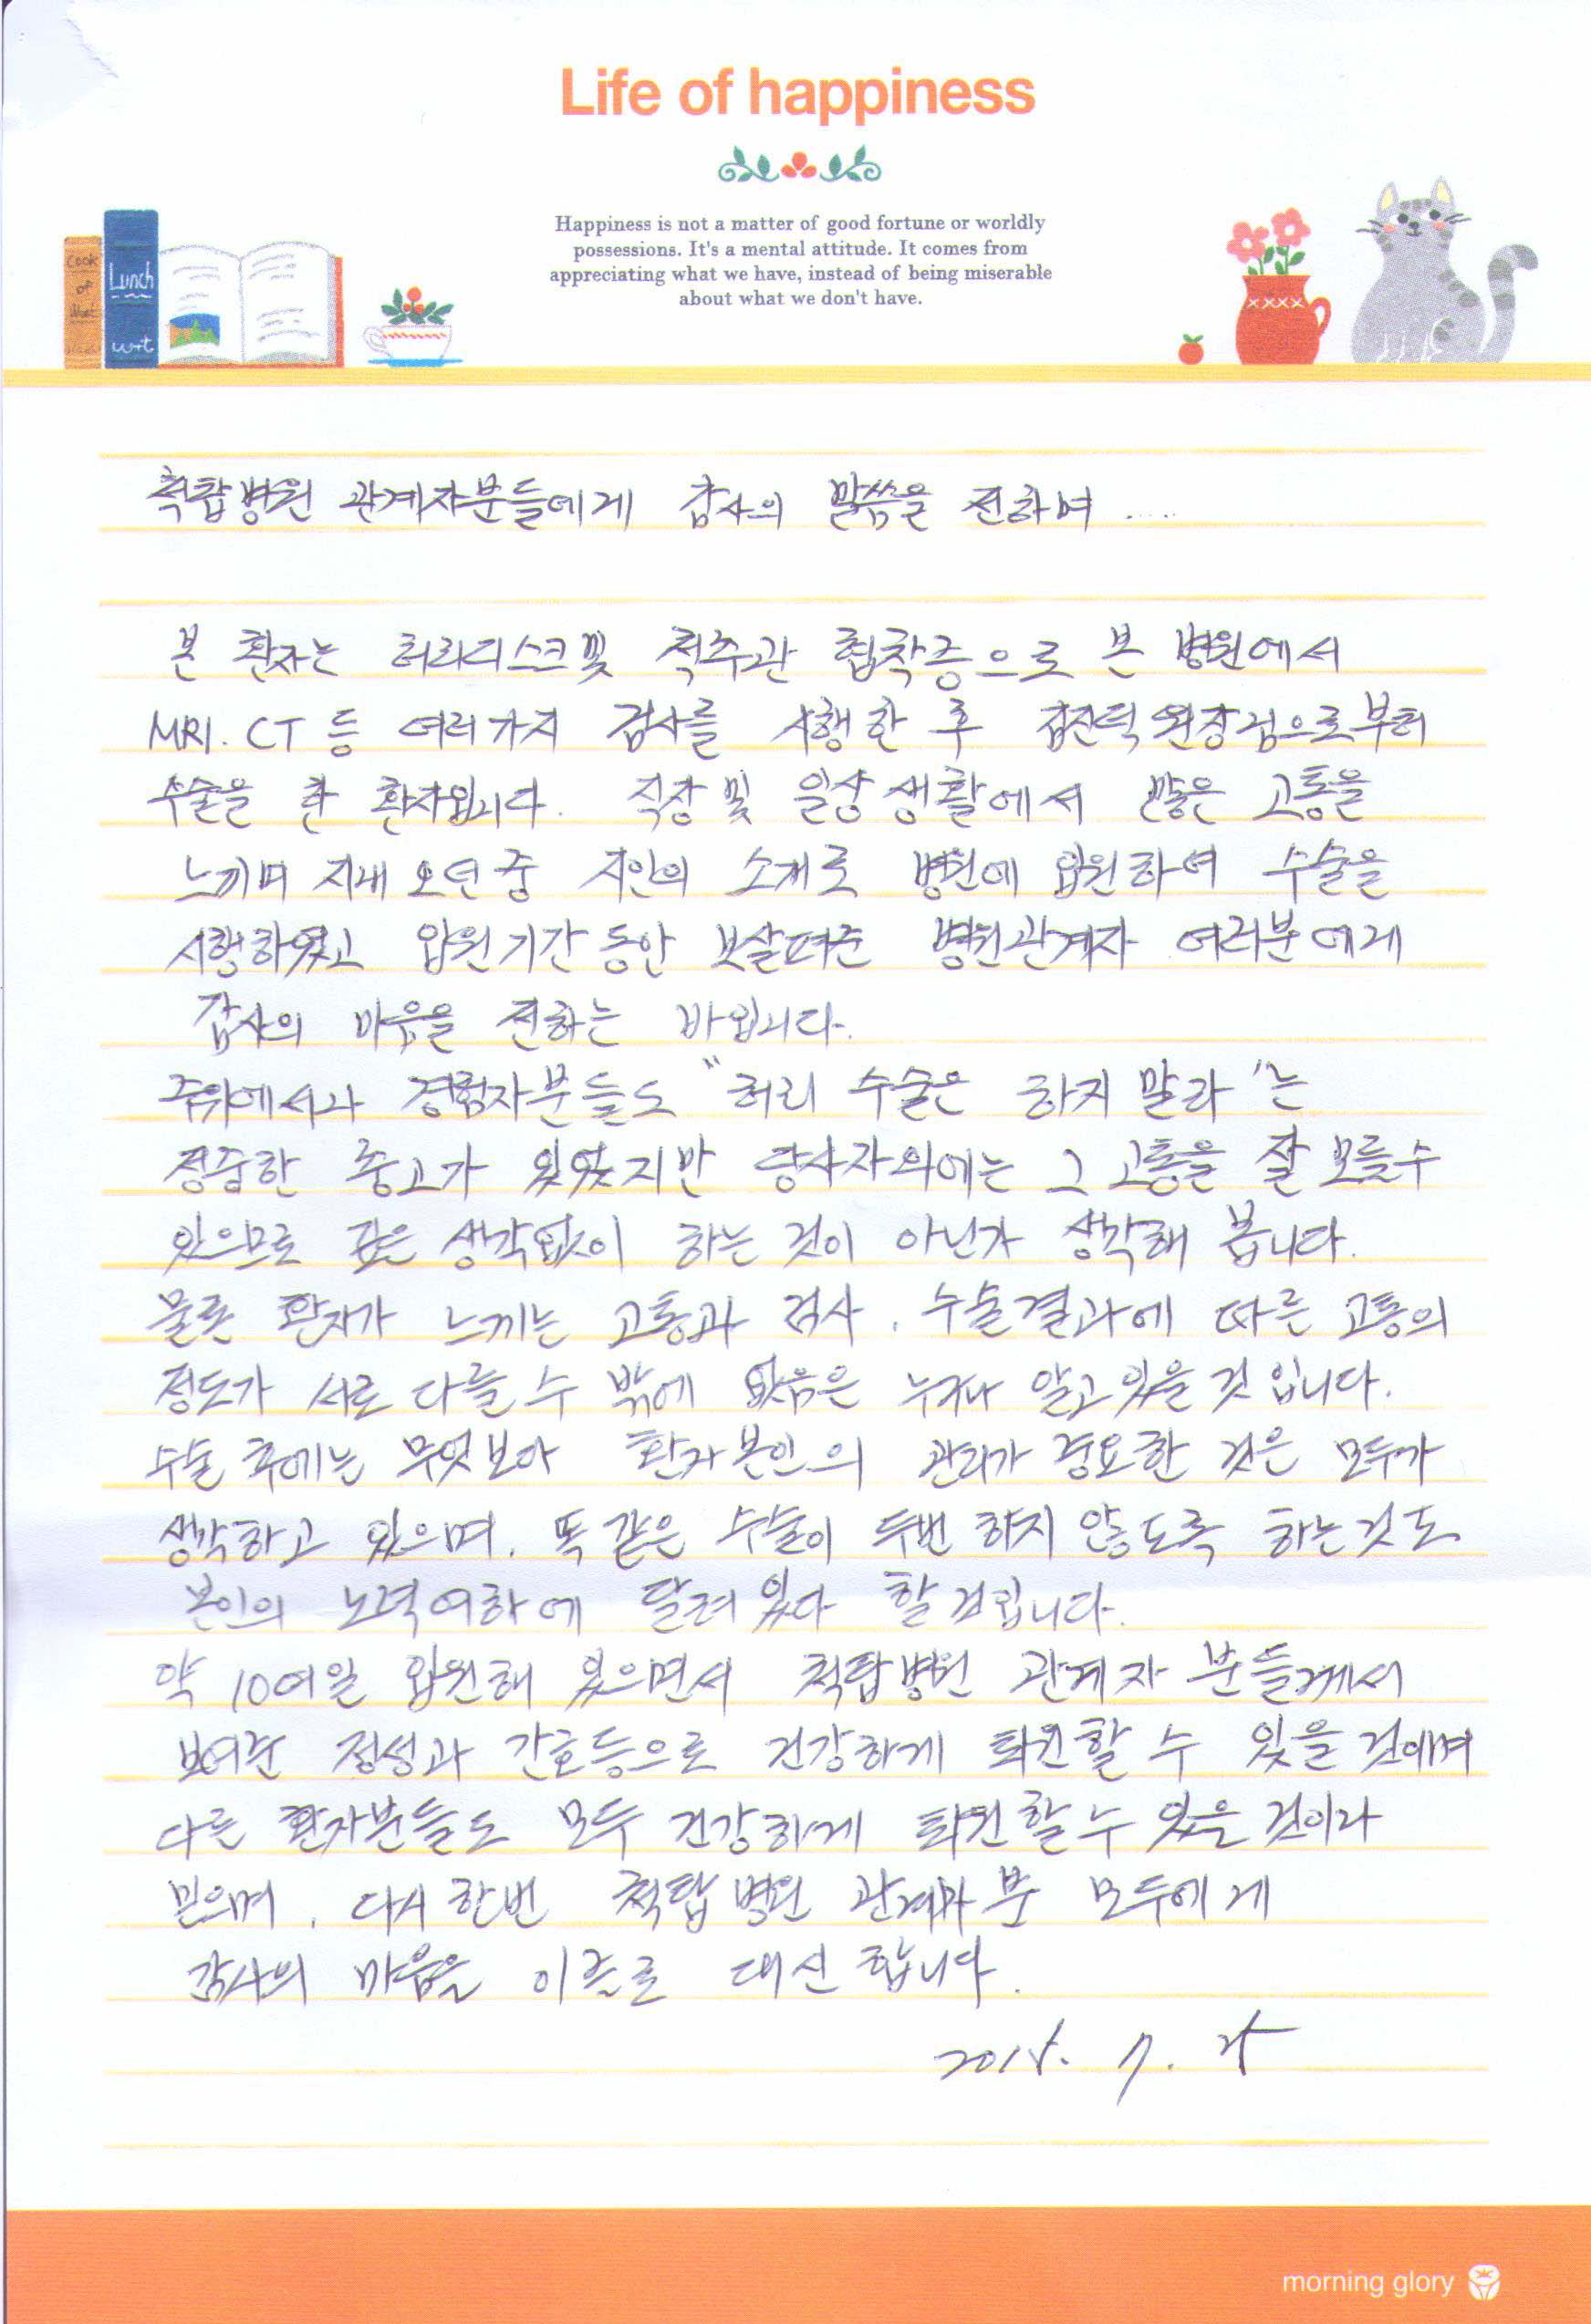 Life of happiness
Happiness is not a matter of good fortune or worldly
possessions. It's a mental attitude. It comes from
appreciating what we have, instead of being miserable
about what we don't have.
Cook
of
Lunch
척탑병원 관계자분들에게 감사의 말씀을 전하며 ....
본 환자는 허리디스크및 척추관 협착증으로 본 병원에서
MRI. CT 등 여러가지 검사를 시행한 후 원장님으로부터
수술을 한 환자입니다. 직장 및 일상생활에서 많은 고통을
느끼며 지내오던중 지인의 소개로 병원에 입원하여 수술을
시행하였고 입원기간동안 보살펴준 병원관계자 여러분에게
감사의 마음을 전하는 바입니다.
주위에서나 경험자분들도 "허리 수술은 하지 말라"는
정중한 충고가 있었지만 당사자외에는 그 고통을 잘 모를수
있으므로 깊은 생각없이 하는 것이 아닌가 생각해 봅니다.
물론 환자가 느끼는 고통과 검사, 수술결과에 따른 고통의
정도가 서로 다를 수 밖에 없음은 누구나 알고 있을 것 입니다.
수술 후에는 무엇보다 환자 본인의 관리가 중요한 것은 모두가
생각하고 있으며, 똑같은 수술이 두번 하지 않도록 하는것도
본인의 노력여하에 달려있다 할 것입니다.
약 10여일 입원해 있으면서 척탑병원 관계자 분들께서
보여준 정성과 간호등으로 건강하게 퇴원할 수 있을 것이며
다른 환자분들도 모두 건강하게 퇴원할 수 있을 것이라
믿으며, 다시 한번 척탑 병원 관계자분 모두에게
감사의 마음을 이글로 대신 합니다.
7.
morning glory